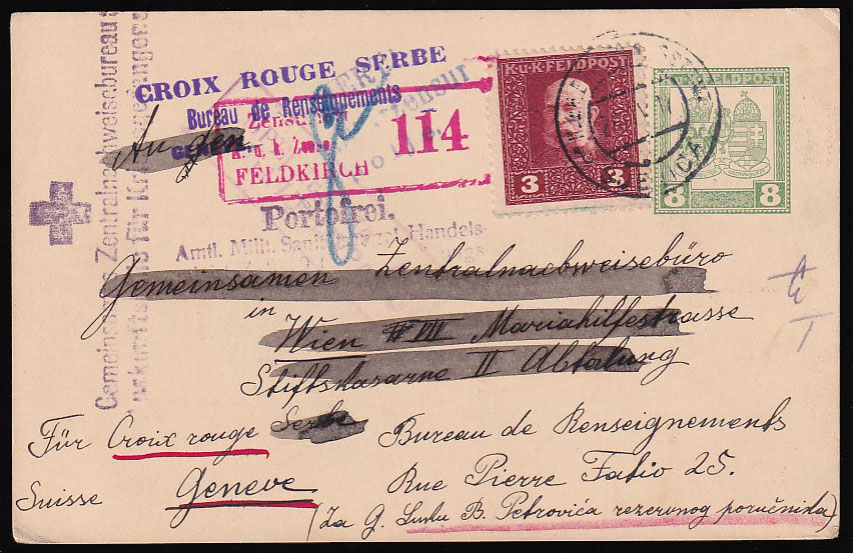 CROIX ROUGE SERBE
Bureau de Renseignements
Zensuriert
K.u.k. Zensur
FELDKIRCH
114
K.u.K. FELDPOST
3 3
FELDPOST
8 8
Portofrei.
Amtl. Milit. Handels-
Gemeinsames Zentralnachweisebureau
Auskunftsstelle für Kriegsgefangene
An den
Gemeinsamen Zentralnachweisebüro
in
Wien VII Mariahilfestrasse
Stiftskaserne II Abtalung
Für Croix rouge Serbe Bureau de Renseignements
Suisse Geneve Rue Pierre Fatio 25.
(Za G. B. Petrovića rezervnog poručnika)